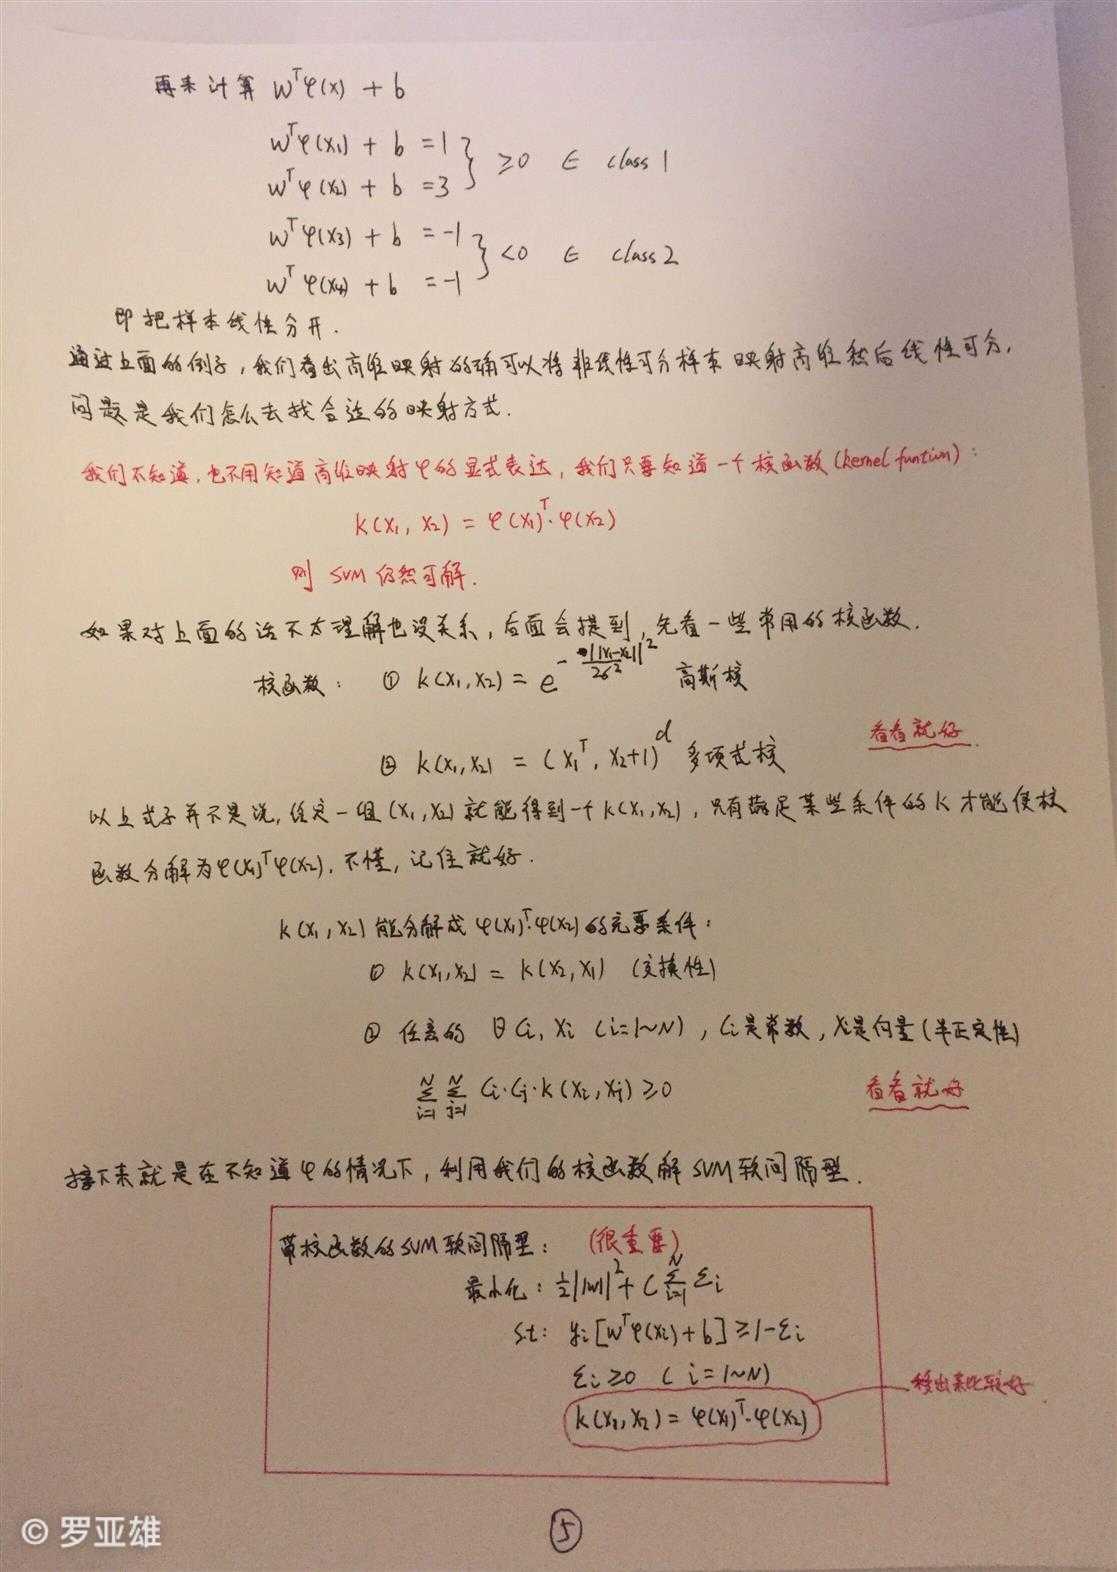 再来计算 WᵀΨ(x) + b
WᵀΨ(x₁) + b = 1
WᵀΨ(x₂) + b = 3
} ≥0 ∈ class 1
WᵀΨ(x₃) + b = -1
WᵀΨ(x₄) + b = -1
} <0 ∈ class 2
即把样本线性分开.
通过上面的例子,我们看出高维映射的确可以将非线性可分样本映射高维然后线性可分,
问题是我们怎么去找合适的映射方式.
我们不知道,也不用知道高维映射Ψ的显式表达,我们只要知道一个核函数(kernel funtion):
K(x₁, x₂) = Ψ(x₁)ᵀ·Ψ(x₂)
则 SVM 仍然可解.
如果对上面的话不太理解也没关系,后面会提到,先看一些常用的核函数.
核函数: ① K(x₁,x₂) = e^(-||x₁-x₂||²/2δ²) 高斯核
看看就好.
② K(x₁,x₂) = (x₁ᵀ, x₂+1)^d 多项式核
以上式子并不是说,任定一组(x₁,x₂)就能得到一个K(x₁,x₂),只有满足某些条件的K才能使核
函数分解为Ψ(x₁)ᵀΨ(x₂).不懂,记住就好.
K(x₁,x₂)能分解成Ψ(x₁)ᵀ·Ψ(x₂)的充要条件:
① K(x₁,x₂) = K(x₂,x₁) (交换性)
② 任意的 ∀Ci, Xi (i=1~N), Ci是常数, Xi是向量(半正定性)
∑ᵢ₌₁ᴺ ∑ⱼ₌₁ᴺ Ci·Cj·K(Xi,Xj) ≥0
看看就好
接下来就是在不知道Ψ的情况下,利用我们的核函数解SVM软间隔型.
带核函数的SVM软间隔型: (很重要)
最小化: ½||w||² + C ∑ᵢ₌₁ᴺ Σi
st: yi[WᵀΨ(xi)+b] ≥1-Σi
Σi ≥0 (i=1~N)
K(x₁,x₂) = Ψ(x₁)ᵀ·Ψ(x₂)
移出来比较好
⑤
© 罗亚雄